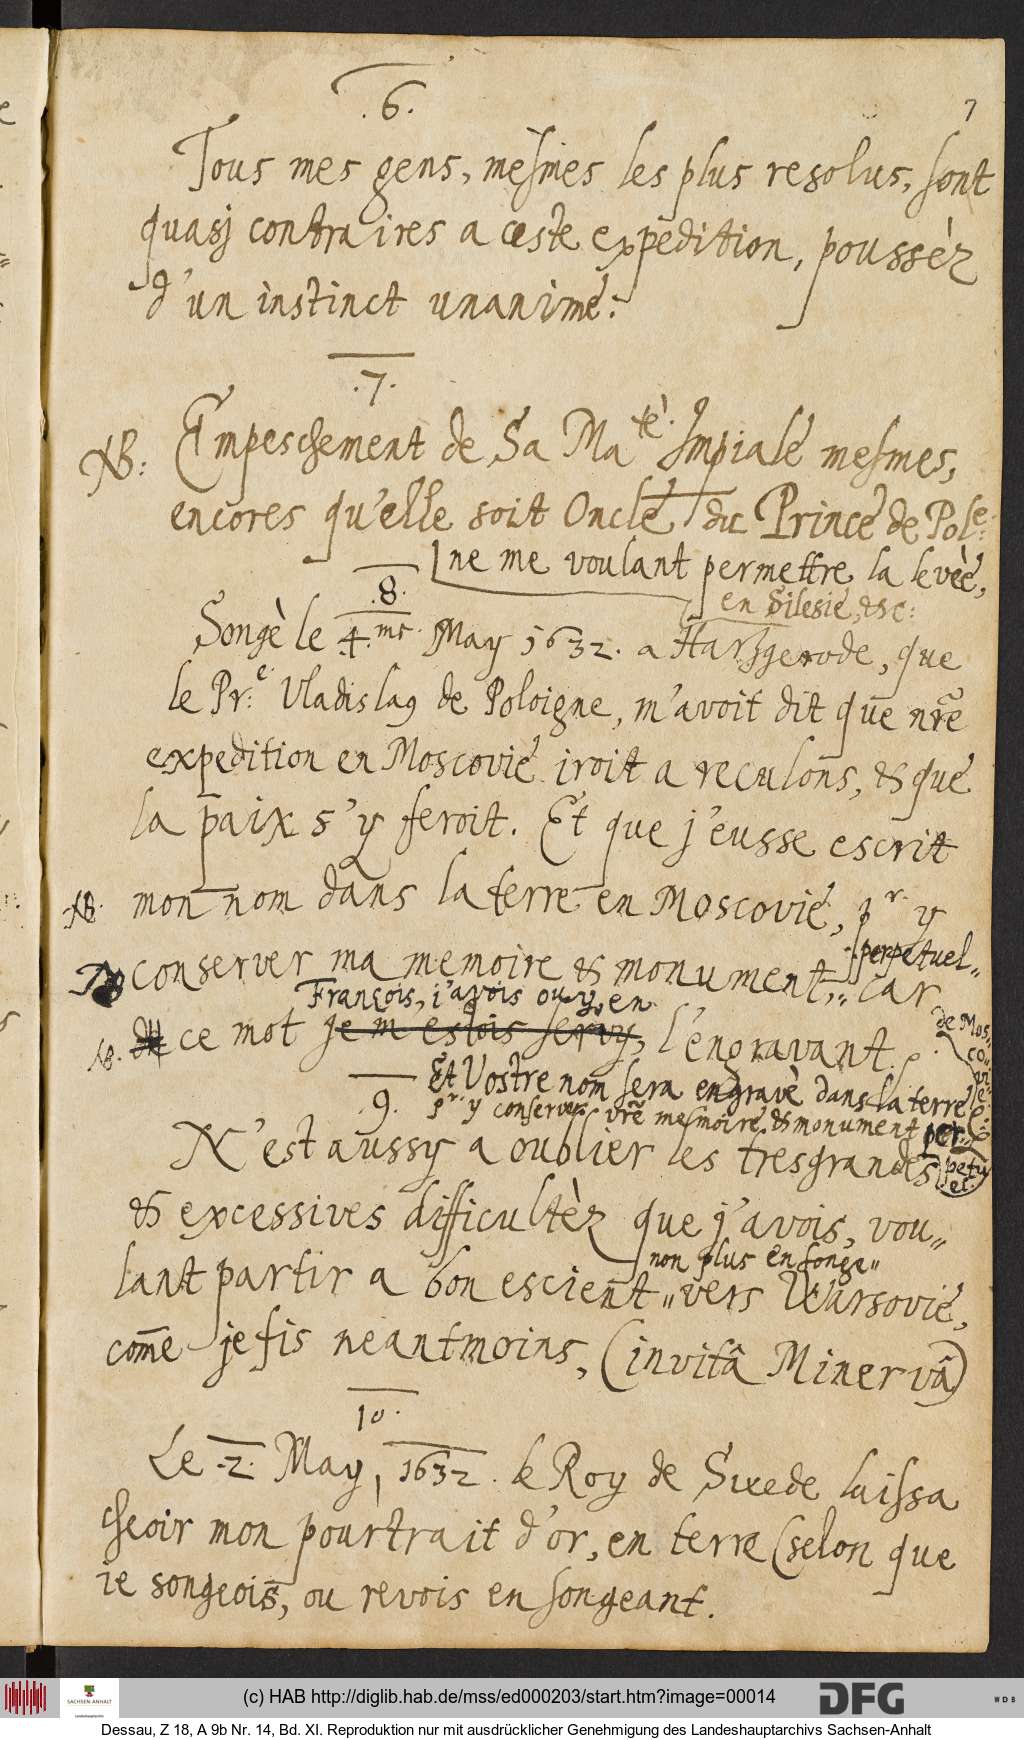 .6.
7
Tous mes gens, mesmes les plus resolus, sont
quasj contraires a ceste expedition, poussèz
d'un instinct unanime.
.7.
NB: Empeschement de Sa Ma.tè Impiale mesmes,
encores qu'elle soit Oncle du Prince de Pole.
ne me voulant permettre la levèe,
en Silesie, &c:
.8.
Songè le .4.me May 1632. a Hartzgerode, que
le Pr.e Vladislaq de Poloigne, m'avoit dit que nr̃e
expedition en Moscovie iroit a reculons, & que
la paix s'y feroit. Et que j'eusse escrit
NB. mon nom dans la terre en Moscovie, pr y
perpetuel„
conserver ma memoire & monument„ car
François, i'avois ouy, en
NB. ce mot je m'estois servy, l'engravant.
de Mos„
co„
vie
Et Vostre nom sera engravè dans la terre
.9. pr. y conserver vr̃e mesmoire, & monument per„
petu
el.
N'est aussy a oublier les tresgrandes
& excessives difficultèz que j'avois, vou„
non plus en songe„
lant partir a bon escient„ vers Warsovie,
com̃e je fis neantmoins, (invitâ Minervâ)
10.
Le .2. May, 1632. le Roy de Swede laissa
cheoir mon pourtrait d'or, en terre (selon que
ie songeois, ou revois en songeant.
(c) HAB http://diglib.hab.de/mss/ed000203/start.htm?image=00014
SACHSEN-ANHALT
DFG
WDB
Dessau, Z 18, A 9b Nr. 14, Bd. XI. Reproduktion nur mit ausdrücklicher Genehmigung des Landeshauptarchivs Sachsen-Anhalt